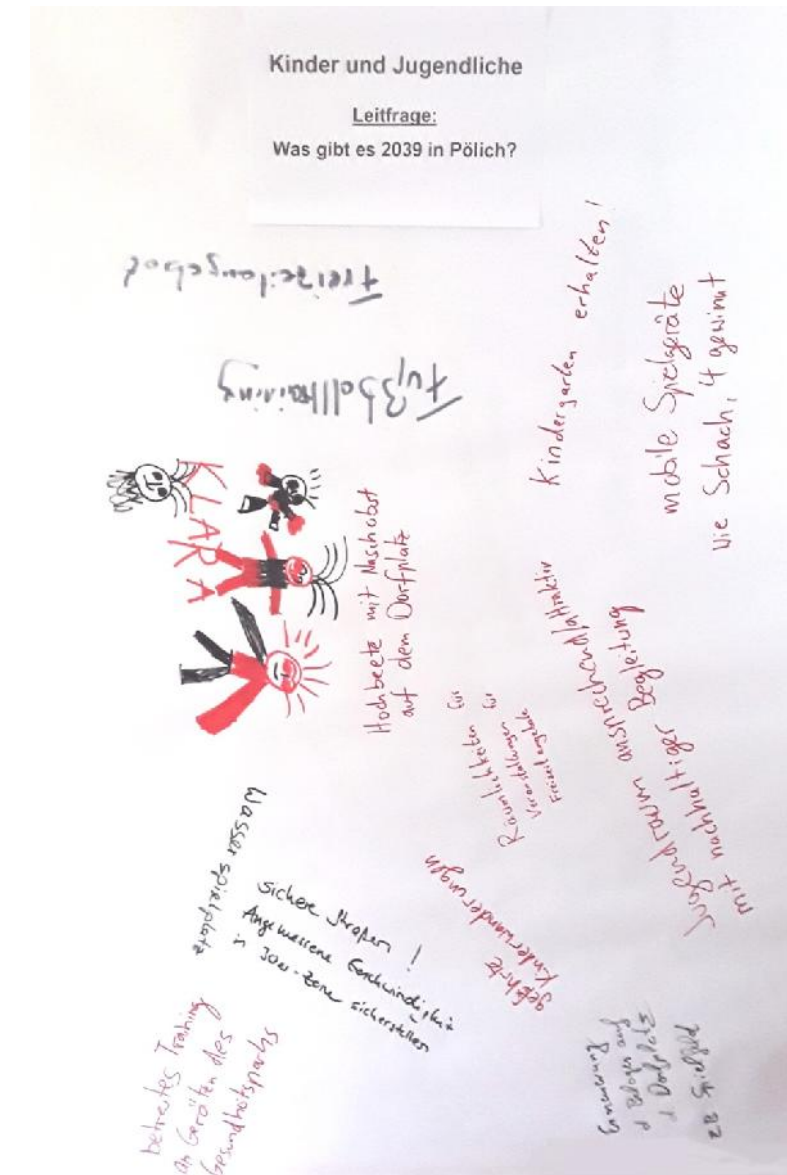 Kinder und Jugendliche
Leitfrage:
Was gibt es 2039 in Pölich?
Freizeitangebot
Fußballtraining
Kindergarten erhalten!
mobile Spielgeräte
wie Schach, 4 gewinnt
KLARA
Hochbeete mit Naschobst
auf dem Dorfplatz
Räumlichkeiten für
Veranstaltungen für
Freizeitangebote
Jugendraum ansprechend/attraktiv
mit nachhaltiger Begleitung
Wasserspielplatz
sichere Straßen!
Angemessene Geschwindigkeit
in 30er-Zone sicherstellen
geführte
Kinderwanderungen
betreutes Training
an Geräten des
Gesundheitsparks
Erneuerung
d
auf
d Dorfplatz
zB Spielfeld